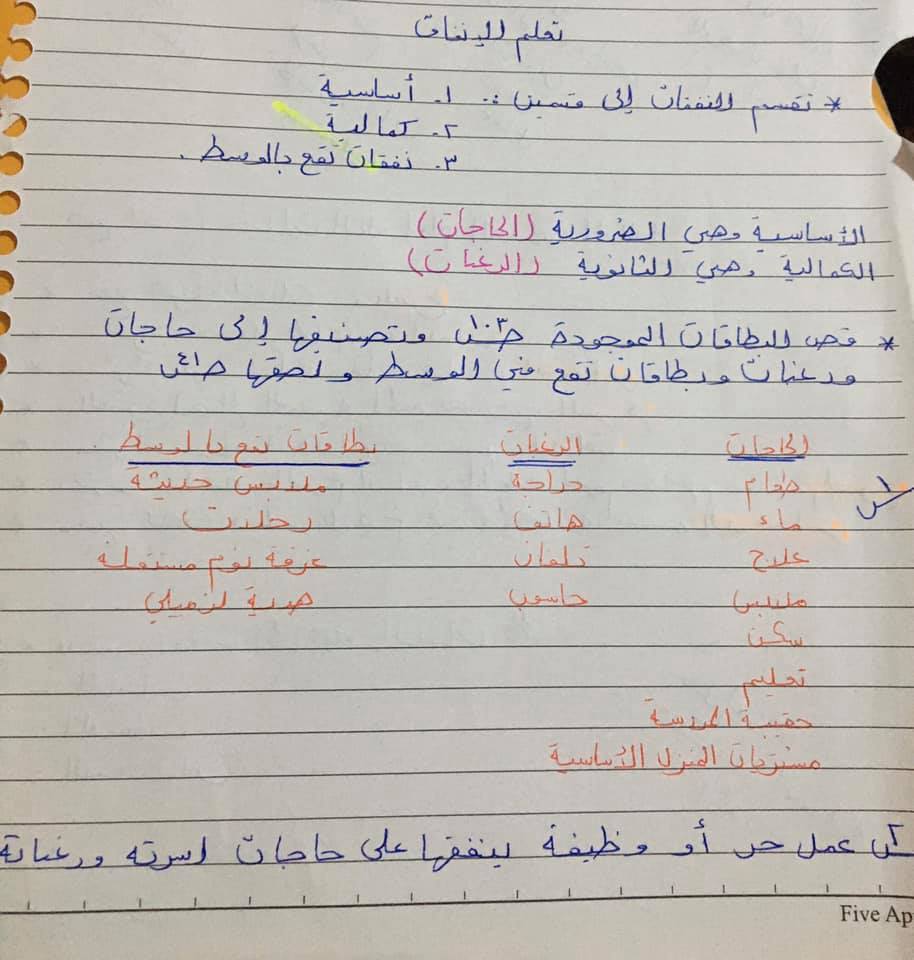 تعلم الإنفاق
* تقسم النفقات إلى قسمين :. ١. أساسية
٢. كمالية
٣. نفقات تقع بالوسط.
الأساسية وهي الضرورية (الحاجات)
الكمالية وهي الثانوية (الرغبات)
* قص البطاقات الموجودة ص ١٠٣ وتصنيفها إلى حاجات
ورغبات وبطاقات تقع في الوسط ولصقها ص ٤١
الحاجات الرغبات بطاقات تقع بالوسط
س١ طعام دراجة ملابس حديثة
ماء هاتف رحلات
علاج تلفاز غرفة نوم مستقلة
ملابس حاسوب هدية لزميلي
سكن
تعليم
حقيبة المدرسة
مشتريات المنزل الأساسية
س٢ عمل حر أو وظيفة ينفقها على حاجات اسرته ورغباته
Five